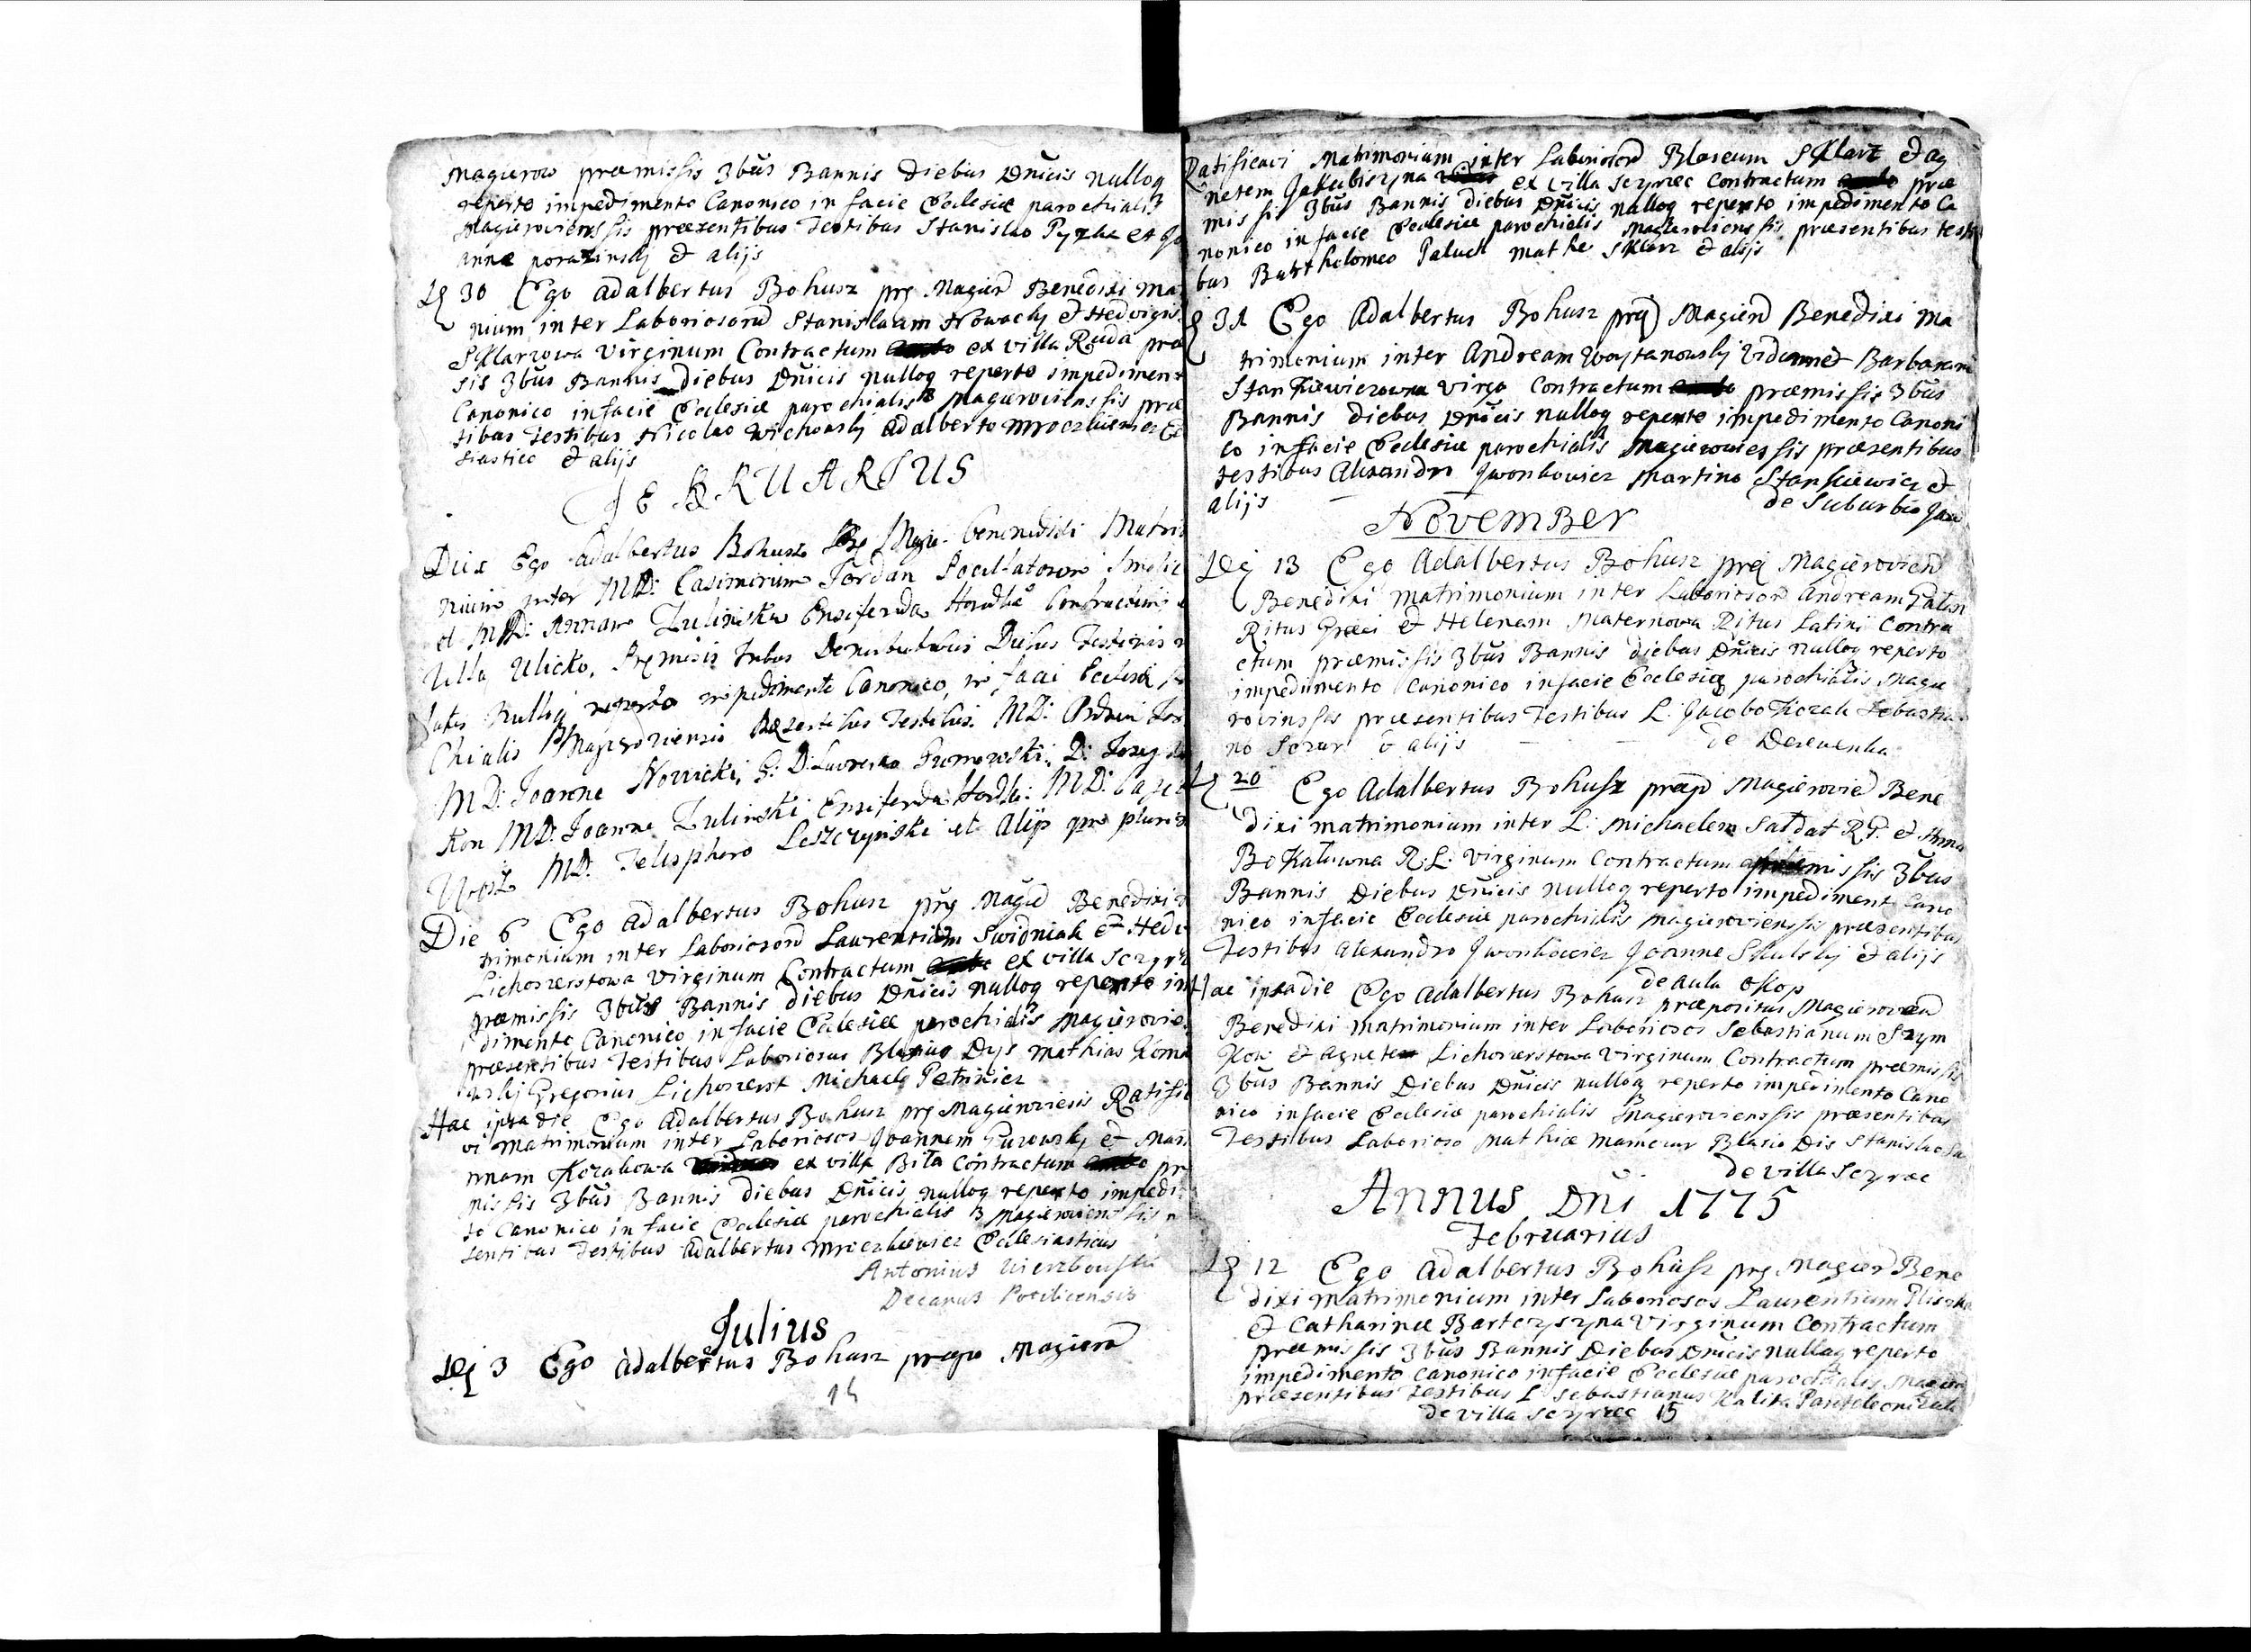 Magierow præmissis 3bus Bannis diebus Dnicis nulloq
reperto impedimento Canonico in facie Ecclesiæ parochialis
Magierovienssis præsentibus Testibus Stanislao Pyzha et Jo
anne porazinsky et alijs
30 Ego Adalbertus Bohusz prg Magierd Benedixi Ma
nium inter Laboriosord Stanislaum Nowacky et Hedvigis
Sklarzowa Virginum Contractum ex villa Ruda præ
sis 3bus Bannis diebus Dnicis nulloq reperto impediment
Canonico in facie Ecclesiæ parochialis Magierovienssis præ
tibus Testibus Nicolao Wichowsky Adalberto Mroczkiewicz Ec
siastico et alijs
FEBRUARIUS
Die Ego Adalbertus Bohusz Magie Benenedixi Matri
nium inter MD: Casimirum Jordan
et MD: Annam Zulinska Ensiferida Contractum
Villa Ulicko, Præmisis Tribus Denuntiationibus Diebus Festivis
Nulloq reperto impedimento Canonico, in facie Ecclesiæ
chialis Magieroviensis Præsentibus Testibus. MD:
MD: Joanne Nowicki, G: D: Laurentio Gumowski: D: Jozeg
MD: Joanne Zulinski Ensiferida MD:
MD. Telesphoro Leszczynski et Alijs
Die 6 Ego Adalbertus Bohusz prg Magied Benedixi
trimonium inter Laboriosord Laurentium Swidniak et Hedv
Lichorerstowa Virginum Contractum ex villa Sczyrz
præmissis 3bus Bannis diebus Dnicis nulloq reperto im
dimento Canonico in facie Ecclesiæ parochialis Magierovie
præsentibus Testibus Laboriosus Blasius Dys Mathias Roma
Gregorius Lichorerst Michaele Petrikiez
Hac ipsa die Ego Adalbertus Bohusz prg Magieroviesis Ratifi
vi Matrimonium inter Laboriosos Joannem Gurowsky et Mari
nnam Kozakowa ex villa Bila Contractum
missis 3bus Bannis diebus Dnicis nulloq reperto impedi
to Canonico in facie Ecclesiæ parochialis Magierovienssis
sentibus Testibus Adalbertus Mroczkiewicz Ecclesiasticus
Antonius Wierzbowski
Decanus Potilicensis
Julius
3 Ego Adalbertus Bohusz præpo Magierd
14
Ratificavi Matrimonium inter Laboriosord Blaseum Sklarz et Ag
netem Jakubiszyna ex villa Sczyrzec Contractum præ
missis 3bus Bannis diebus Dnicis nulloq reperto impedimento Ca
nonico in facie Ecclesiæ parochialis Magierovienssis præsentibus testi
bus Bartholomeo Paluch Mathe Sklarz et alijs
31 Ego Adalbertus Bohusz prg Magierd Benedixi Ma
trimonium inter Andream Woytanowsky Viduum et Barbaram
Stankiewiczowna Virgo Contractum præmissis 3bus
Bannis diebus Dnicis nulloq reperto impedimento Canoni
co in facie Ecclesiæ parochialis Magierowiessis præsentibus
testibus Alexandro Jwonkowicz Martino Stankiewicz et
alijs de Suburbio
November
13 Ego Adalbertus Bohusz prg Magierovierd
Benedixi Matrimonium inter Laboriosord Andream
Ritus Græci et Helenam Maternowa Ritus Latini Contra
ctum præmissis 3bus Bannis diebus Dnicis nulloq reperto
impedimento Canonico in facie Ecclesiæ parochialis Magie
rovinssis præsentibus Testibus L. Jacobo Kozak Sebastia
no Sczur et alijs de Derevenka
20 Ego Adalbertus Bohusz præp Magierovied Bene
dixi matrimonium inter L: Michaelem Saldat R.G. et Anna
Bokatowna R: L: Virginum Contractum præmissis 3bus
Bannis Diebus Dnicis nulloq reperto impediment Cano
nico in facie Ecclesiæ parochialis Magierovienssis præsentibus
Testibus Alexandro Jwonkowicz Joanne Skulsky et alijs
de Aula Okop
Hac ipsa die Ego Adalbertus Bohusz præpositus Magierovierd
Benedixi Matrimonium inter Laboriosos Sebastianum Szym
kow et Agnetem Lichorerstowa Virginum Contractum præmissis
3bus Bannis Diebus Dnicis nulloq reperto impedimento Cano
nico in facie Ecclesiæ parochialis Magierovienssis præsentibus
Testibus Laborioso Mathiæ Blasio Dis Stanislao
de Villa Sczyrzec
Annus Dni 1775
Februarius
12 Ego Adalbertus Bohusz prg Magier Bene
dixi Matrimonium inter Laboriosos Laurentium Pliszka
et Catharinæ Bartczyszyna Virginum Contractum
præmissis 3bus Bannis Diebus Dnicis nulloq reperto
impedimento Canonico in facie Ecclesiæ parochialis
præsentibus testibus L Sebastianus Kalita
de Villa Sczyrzec 15